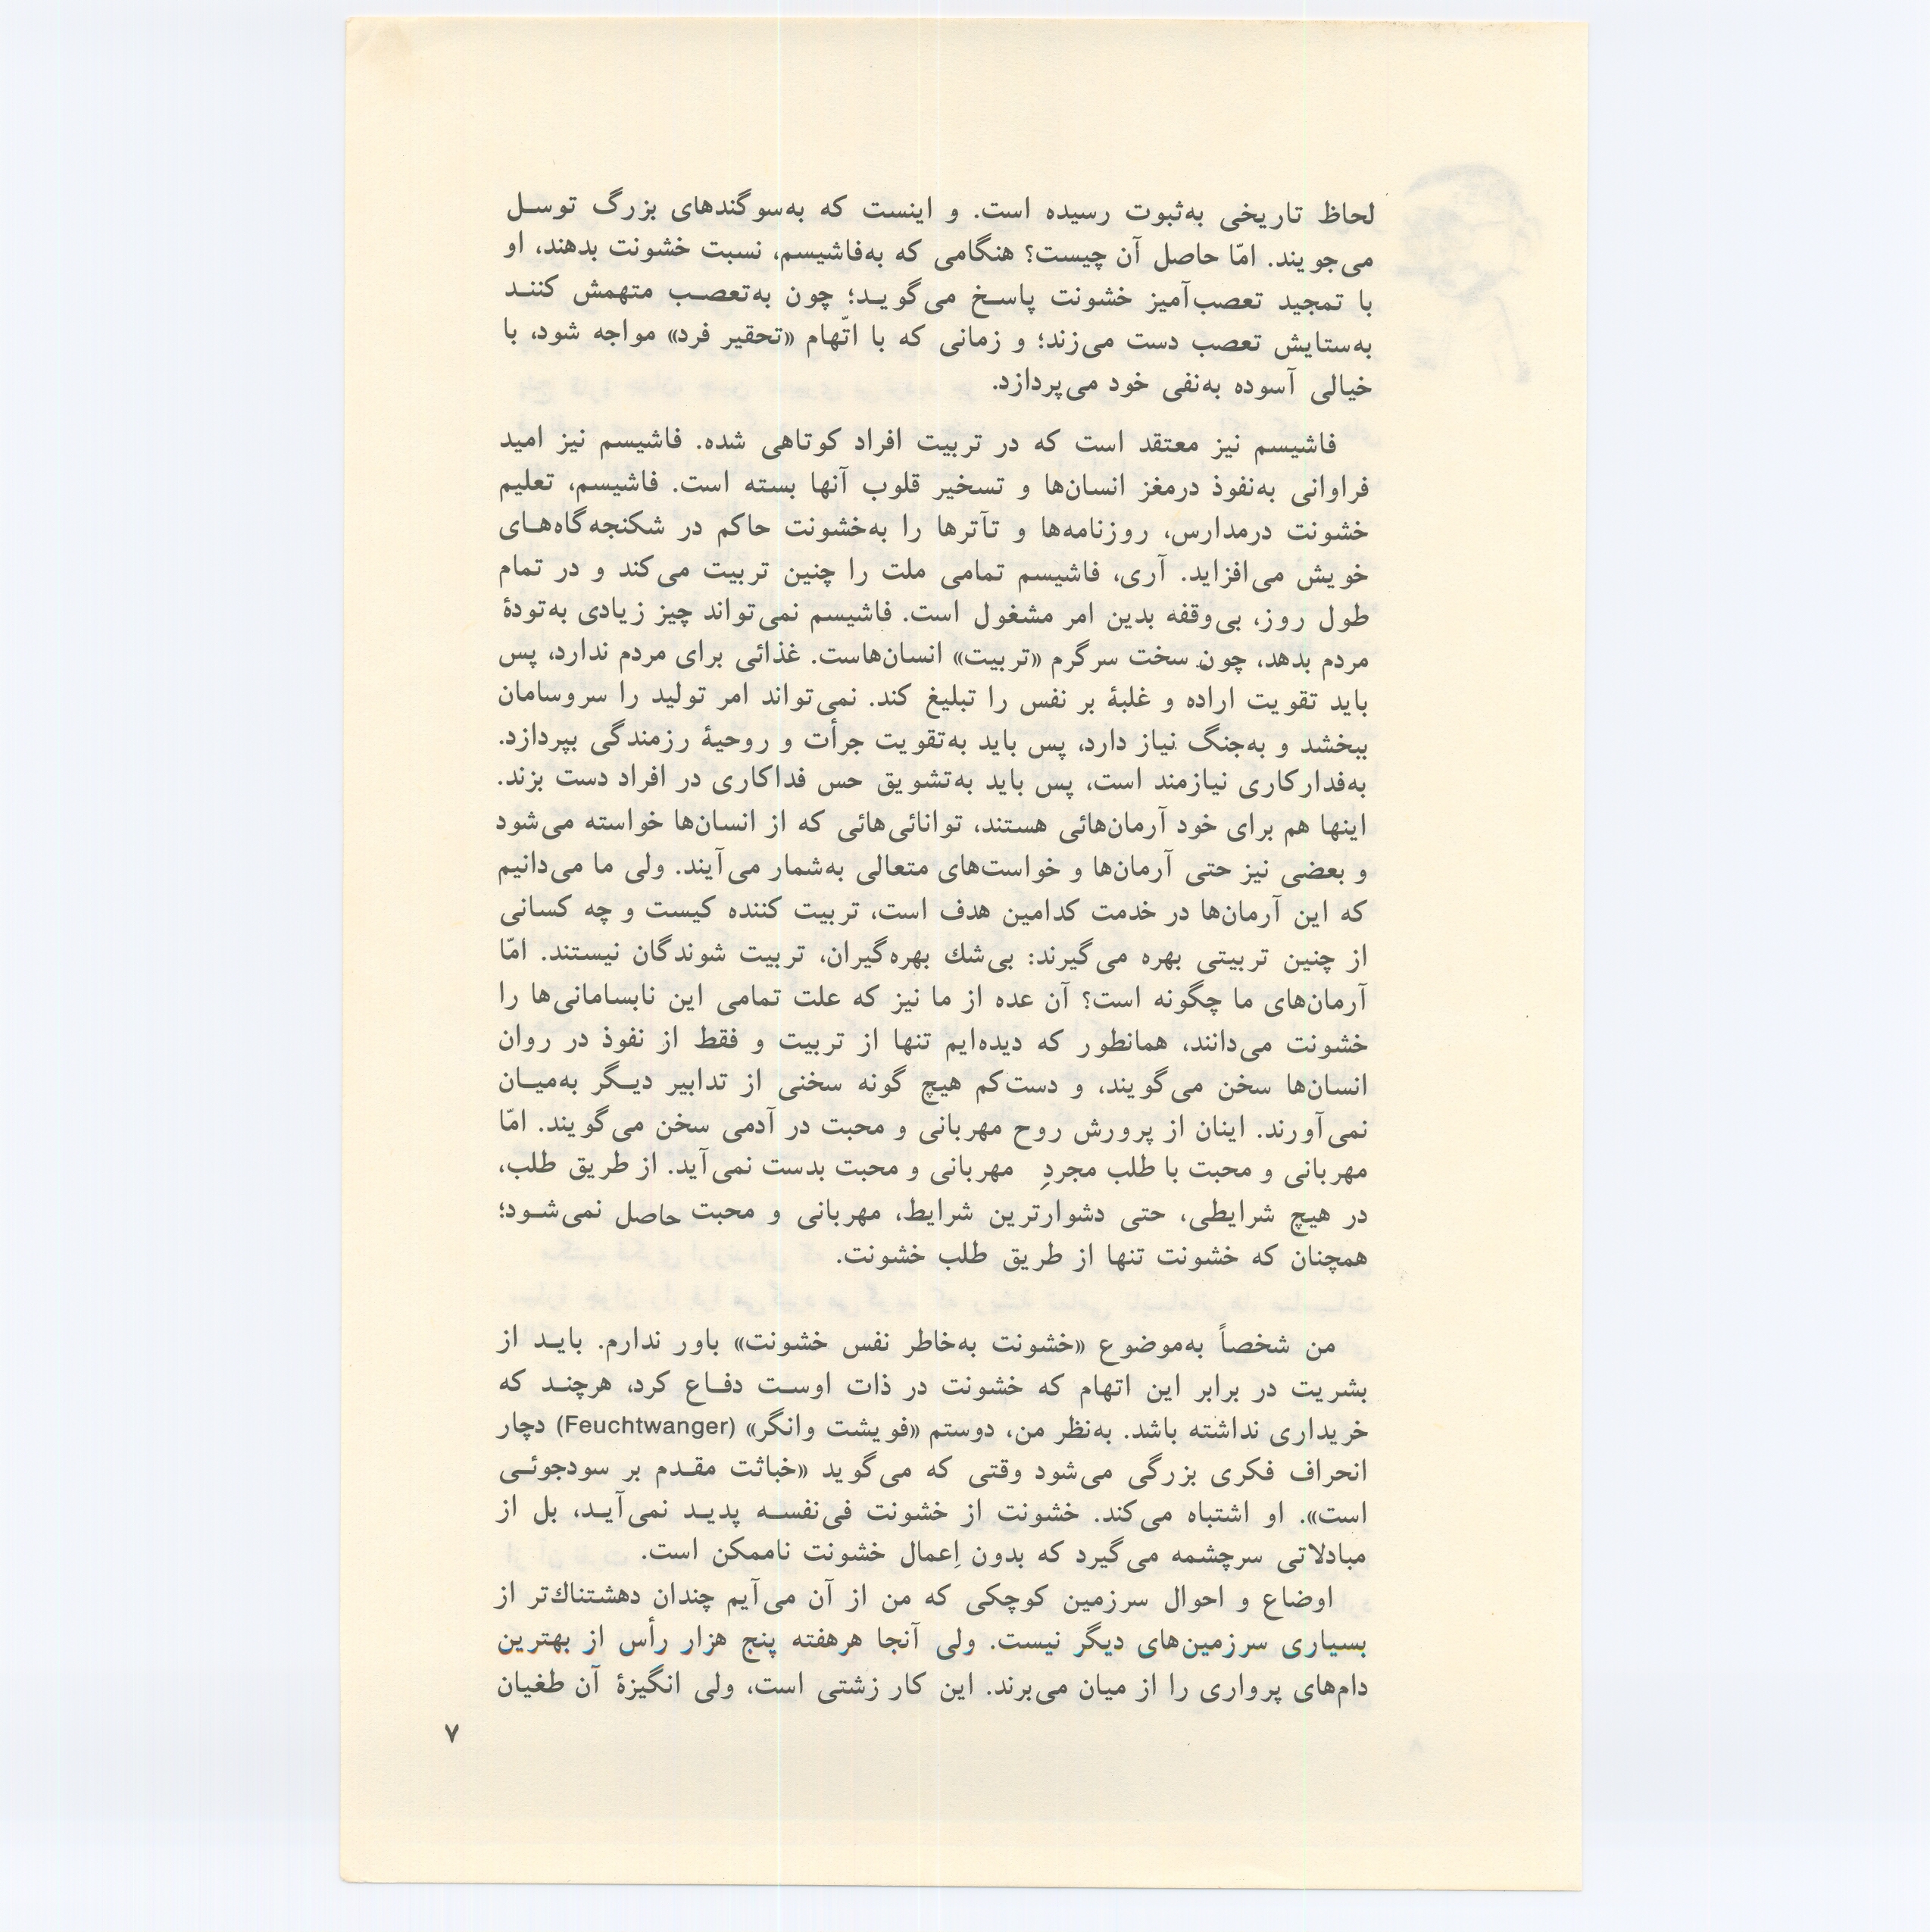 لحاظ تاریخی به‌ثبوت رسیده است. و اینست که به‌سوگندهای بزرگ توسل
می‌جویند. امّا حاصل آن چیست؟ هنگامی که به‌فاشیسم، نسبت خشونت بدهند، او
با تمجید تعصب‌آمیز خشونت پاسخ می‌گوید؛ چون به‌تعصب متهمش کنند
به‌ستایش تعصب دست می‌زند؛ و زمانی که با اتّهام «تحقیر فرد» مواجه شود، با
خیالی آسوده به‌نفی خود می‌پردازد.
فاشیسم نیز معتقد است که در تربیت افراد کوتاهی شده. فاشیسم نیز امید
فراوانی به‌نفوذ درمغز انسان‌ها و تسخیر قلوب آنها بسته است. فاشیسم، تعلیم
خشونت درمدارس، روزنامه‌ها و تآترها را به‌خشونت حاکم در شکنجه‌گاه‌های
خویش می‌افزاید. آری، فاشیسم تمامی ملت را چنین تربیت می‌کند و در تمام
طول روز، بی‌وقفه بدین امر مشغول است. فاشیسم نمی‌تواند چیز زیادی به‌تودهٔ
مردم بدهد، چون سخت سرگرم «تربیت» انسان‌هاست. غذائی برای مردم ندارد، پس
باید تقویت اراده و غلبهٔ بر نفس را تبلیغ کند. نمی‌تواند امر تولید را سروسامان
ببخشد و به‌جنگ نیاز دارد، پس باید به‌تقویت جرأت و روحیهٔ رزمندگی بپردازد.
به‌فدارکاری نیازمند است، پس باید به‌تشویق حس فداکاری در افراد دست بزند.
اینها هم برای خود آرمان‌هائی هستند، توانائی‌هائی که از انسان‌ها خواسته می‌شود
و بعضی نیز حتی آرمان‌ها و خواست‌های متعالی به‌شمار می‌آیند. ولی ما می‌دانیم
که این آرمان‌ها در خدمت کدامین هدف است، تربیت کننده کیست و چه کسانی
از چنین تربیتی بهره می‌گیرند: بی‌شك بهره‌گیران، تربیت شوندگان نیستند. امّا
آرمان‌های ما چگونه است؟ آن عده از ما نیز که علت تمامی این نابسامانی‌ها را
خشونت می‌دانند، همانطور که دیده‌ایم تنها از تربیت و فقط از نفوذ در روان
انسان‌ها سخن می‌گویند، و دست‌کم هیچ گونه سخنی از تدابیر دیگر به‌میان
نمی‌آورند. اینان از پرورش روح مهربانی و محبت در آدمی سخن می‌گویند. امّا
مهربانی و محبت با طلب مجردِ مهربانی و محبت بدست نمی‌آید. از طریق طلب،
در هیچ شرایطی، حتی دشوارترین شرایط، مهربانی و محبت حاصل نمی‌شود؛
همچنان که خشونت تنها از طریق طلب خشونت.
من شخصاً به‌موضوع «خشونت به‌خاطر نفس خشونت» باور ندارم. باید از
بشریت در برابر این اتهام که خشونت در ذات اوست دفاع کرد، هرچند که
خریداری نداشته باشد. به‌نظر من، دوستم «فویشت وانگر» (Feuchtwanger) دچار
انحراف فکری بزرگی می‌شود وقتی که می‌گوید «خباثت مقدم بر سودجوئی
است». او اشتباه می‌کند. خشونت از خشونت فی‌نفسه پدید نمی‌آید، بل از
مبادلاتی سرچشمه می‌گیرد که بدون اِعمال خشونت ناممکن است.
اوضاع و احوال سرزمین کوچکی که من از آن می‌آیم چندان دهشتناك‌تر از
بسیاری سرزمین‌های دیگر نیست. ولی آنجا هرهفته پنج هزار رأس از بهترین
دام‌های پرواری را از میان می‌برند. این کار زشتی است، ولی انگیزهٔ آن طغیان
۷